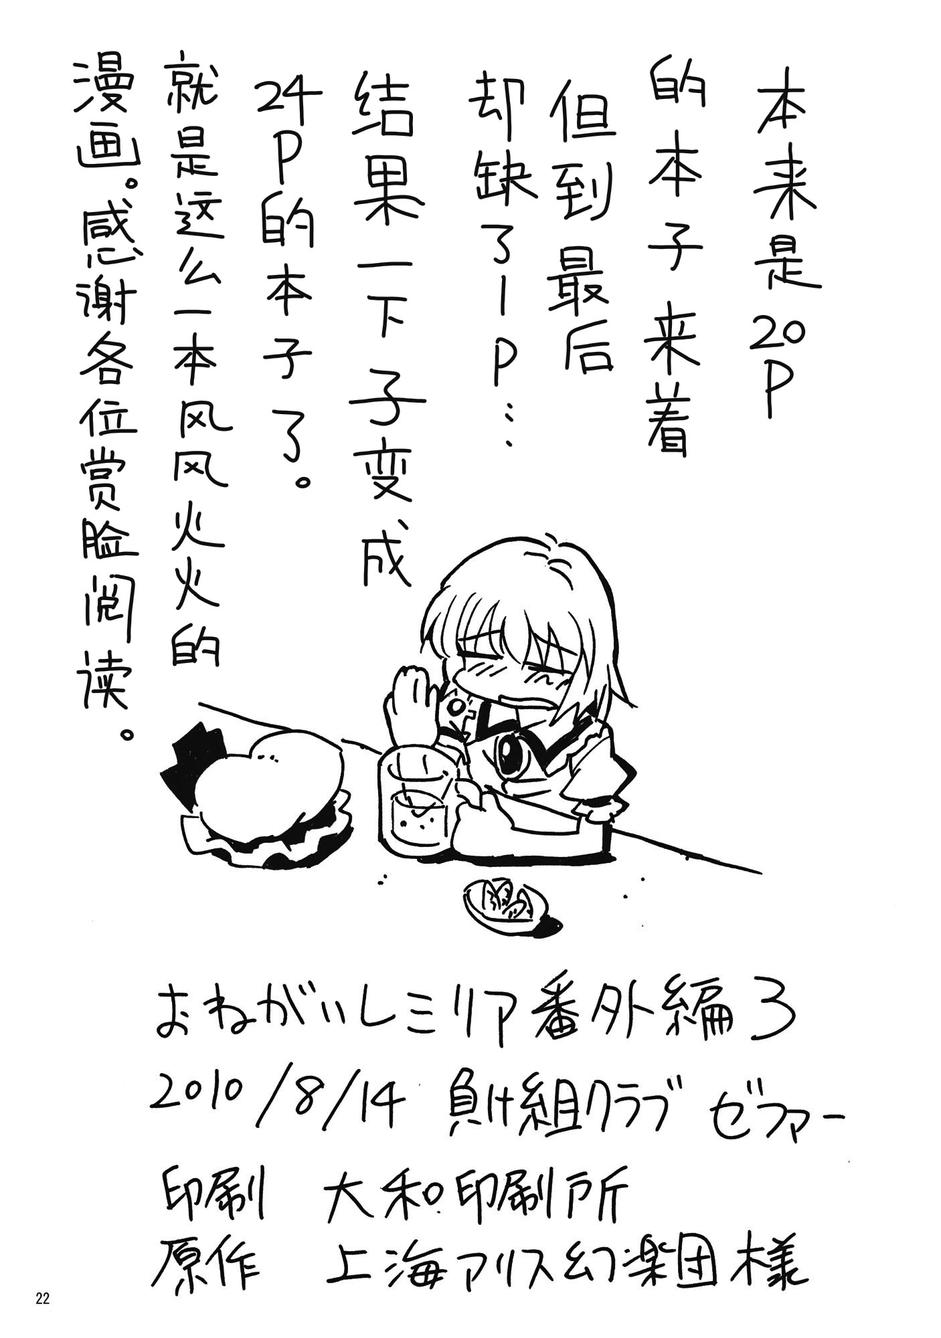 本来是20P
的本子来着
但到最后
却缺了1P……
结果一下子变成
24P的本子了。
就是这么一本风风火火的
漫画。感谢各位赏脸阅读。
おねがいレミリア番外編3
2010/8/14 負け組クラブ ゼファー
印刷 大和印刷所
原作 上海アリス幻楽団様
22